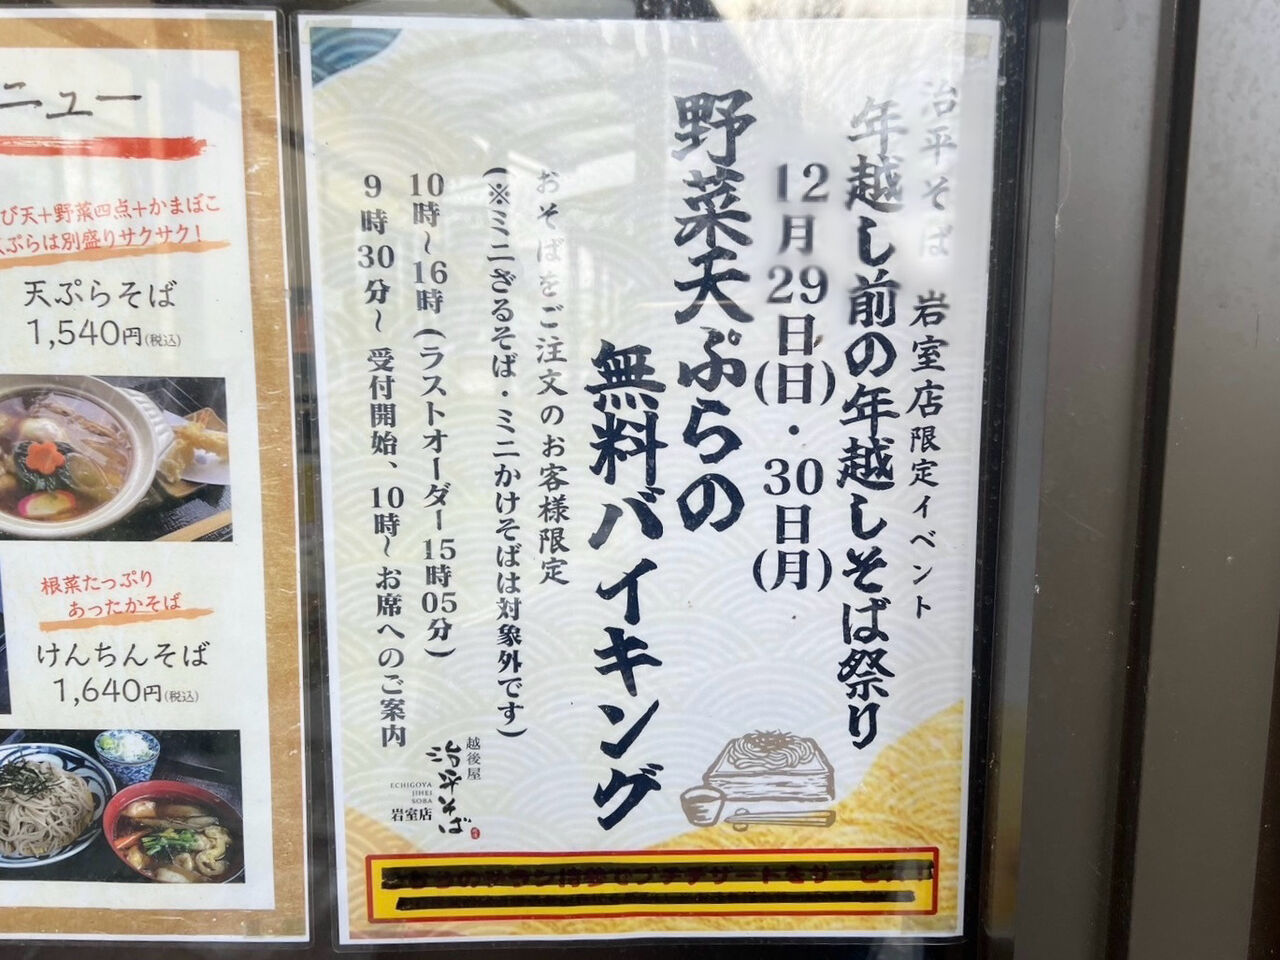 治平そば 岩室店限定イベント
年越し前の年越しそば祭り
12月29日(日)・30日(月)
野菜天ぷらの
無料バイキング
おそばをご注文のお客様限定
(※ミニざるそば・ミニかけそばは対象外です)
10時～16時(ラストオーダー15時05分)
9時30分～受付開始、10時～お席へのご案内
越後屋
治平そば
ECHIGOYA
JIHEI
SOBA
岩室店
ニュー
び天+野菜四点+かまぼこ
ぷらは別盛りサクサク!
天ぷらそば
1,540円(税込)
根菜たっぷり
あったかそば
けんちんそば
1,640円(税込)